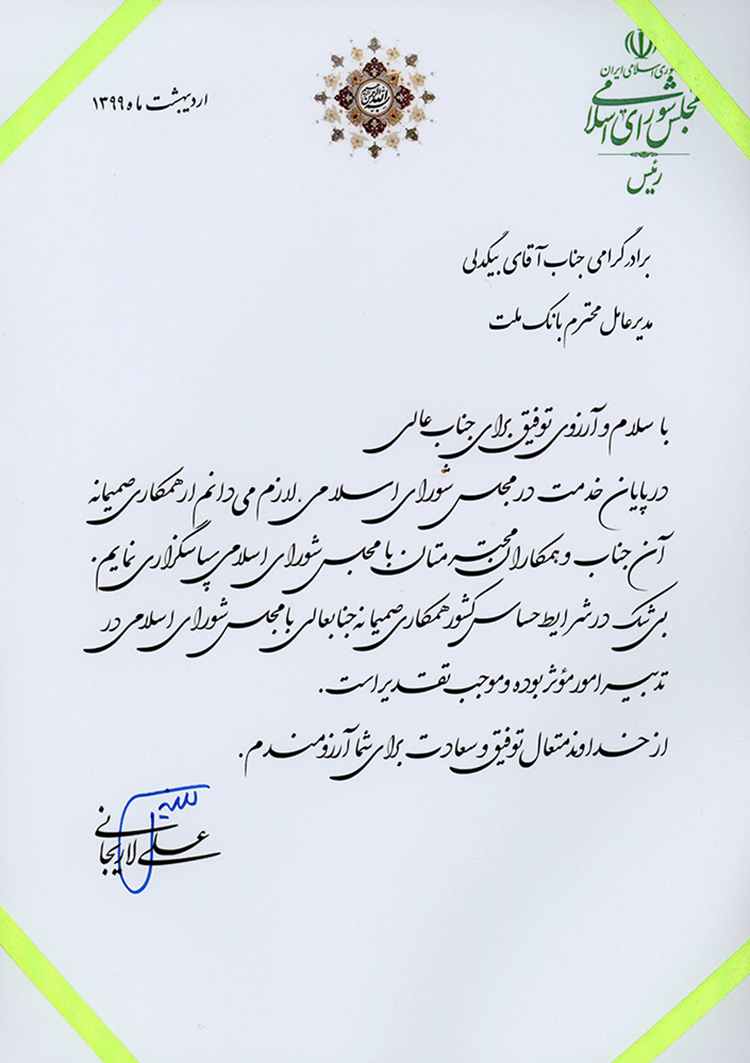 جمهوری اسلامی ایران
مجلس شورای اسلامی
رئیس
اردیبهشت ماه ۱۳۹۹
برادر گرامی جناب آقای بیگدلی
مدیرعامل محترم بانک ملت
با سلام و آرزوی توفیق برای جناب عالی
در پایان خدمت در مجلس شورای اسلامی، لازم می دانم از همکاری صمیمانه
آن جناب و همکاران محترمتان با مجلس شورای اسلامی سپاسگزاری نمایم.
بی شک در شرایط حساس کشور همکاری صمیمانه جنابعالی با مجلس شورای اسلامی در
تدبیر امور مؤثر بوده و موجب تقدیر است.
از خداوند متعال توفیق و سعادت برای شما آرزومندم.
علی لاریجانی